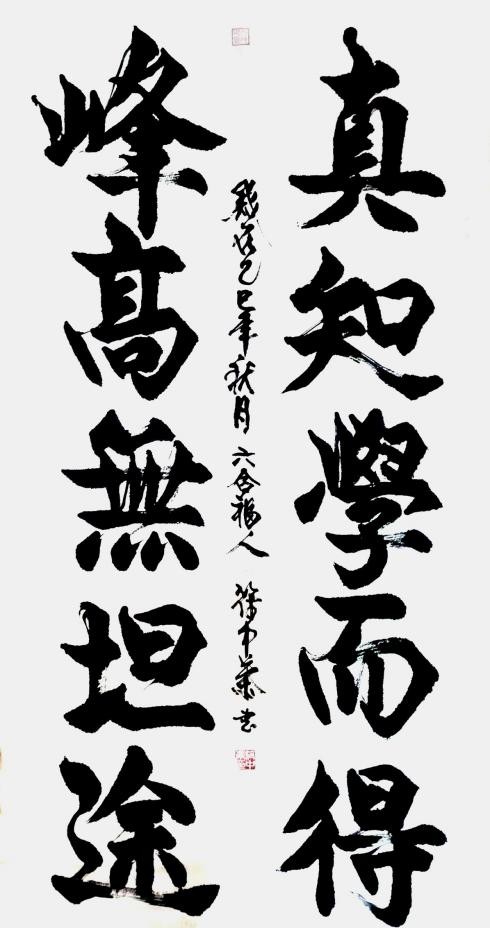 真知學而得
峰高無坦途
歲次乙巳年秋月 六合福人 徐中 書